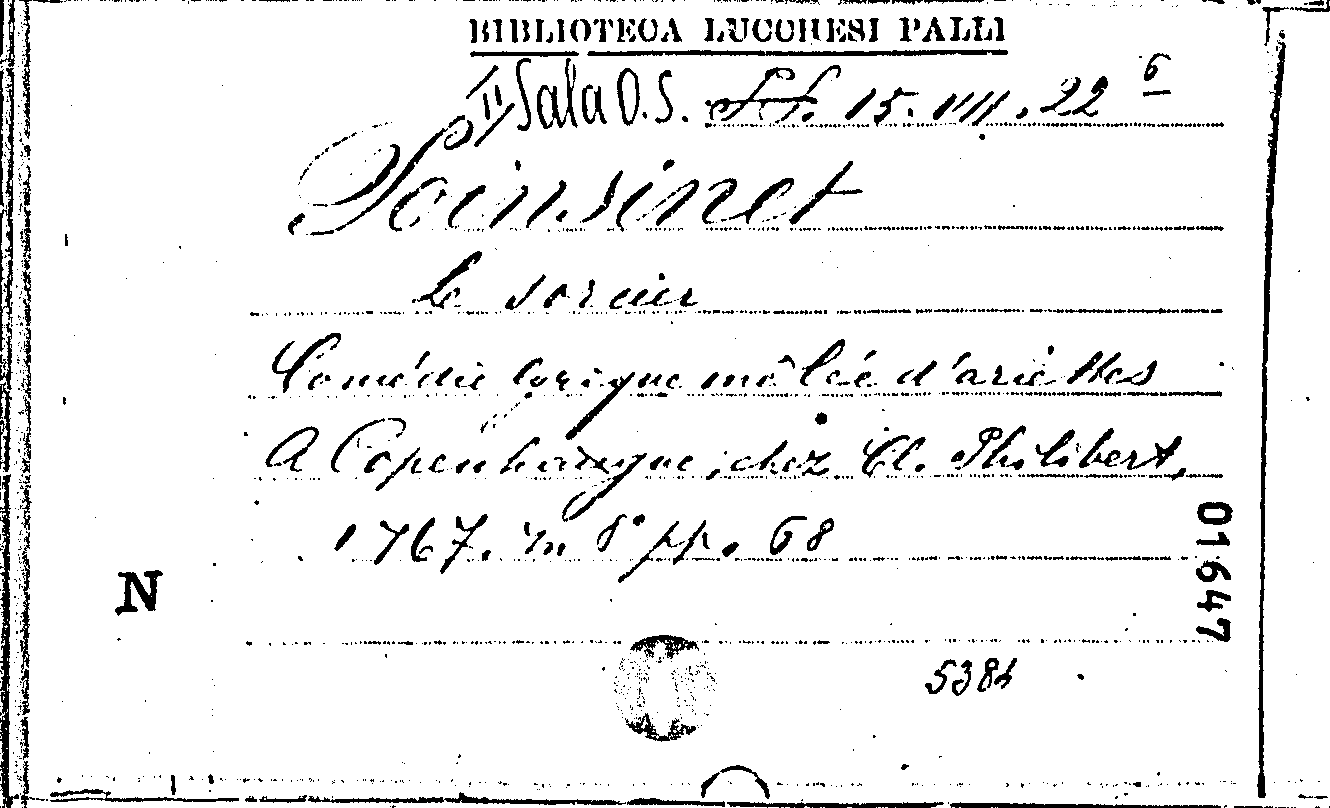 BIBLIOTECA LUCCHESI PALLI
II Sala O.S. 15. VII. 22 6
Poinsinet
Le sorcier
Comédie lyrique mêlée d'ariettes
A Copenhangue, chez Cl. Philibert,
1767. in 8° pp. 68
N
01647
5384